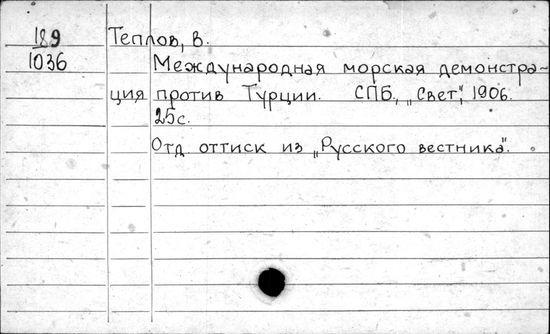 189 Теплов, В.
1036 Международная морская демонстра-
ция против Турции. СПБ., „Свет", 1906.
25с.
Отд. оттиск из „Русского вестника".